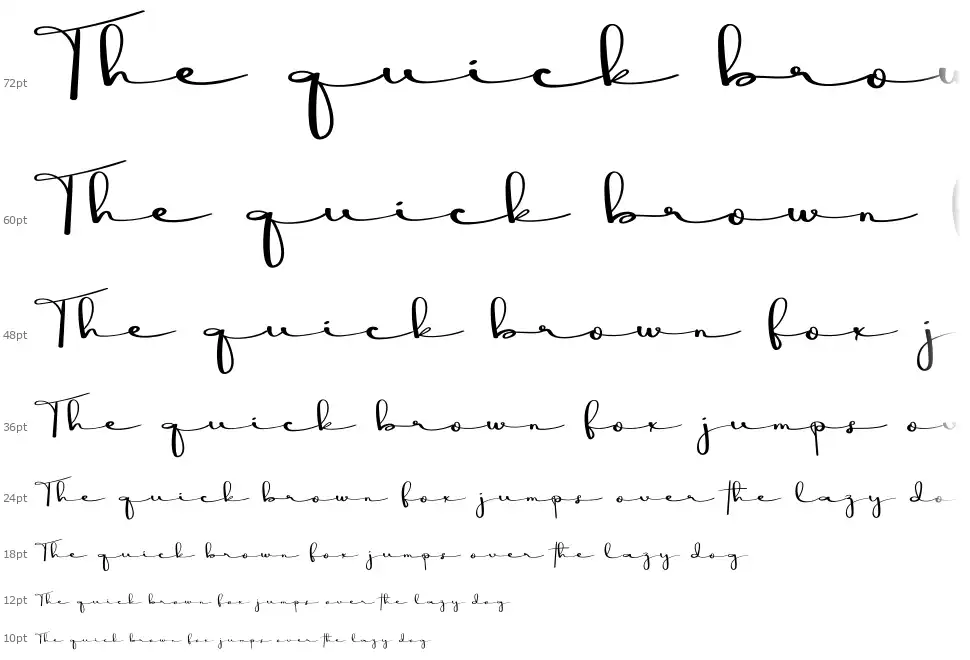 72pt The quick brow
60pt The quick brown
48pt The quick brown fox j
36pt The quick brown fox jumps ov
24pt The quick brown fox jumps over the lazy do
18pt The quick brown fox jumps over the lazy dog
12pt The quick brown fox jumps over the lazy dog
10pt The quick brown fox jumps over the lazy dog